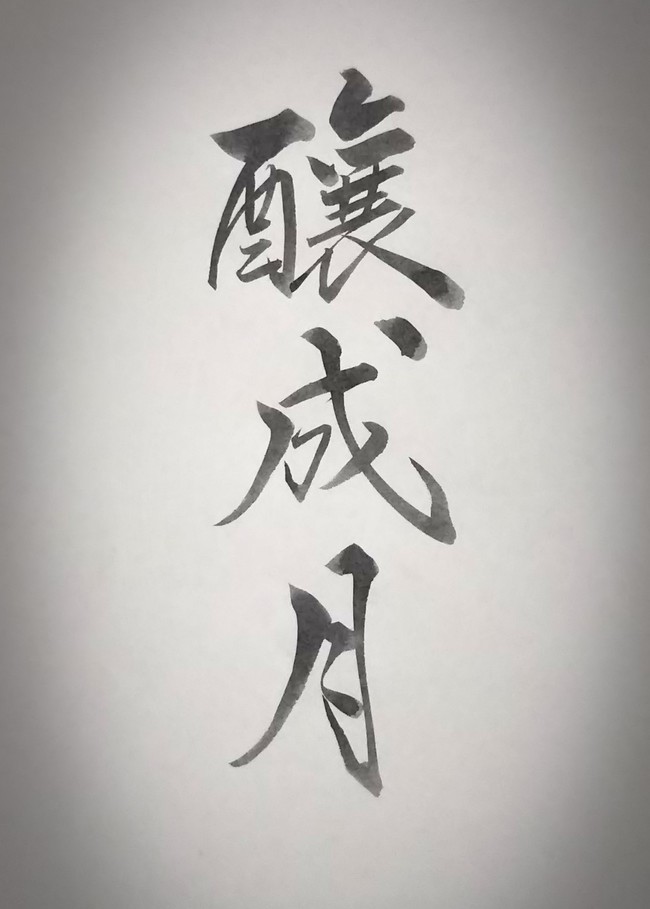 醸成月